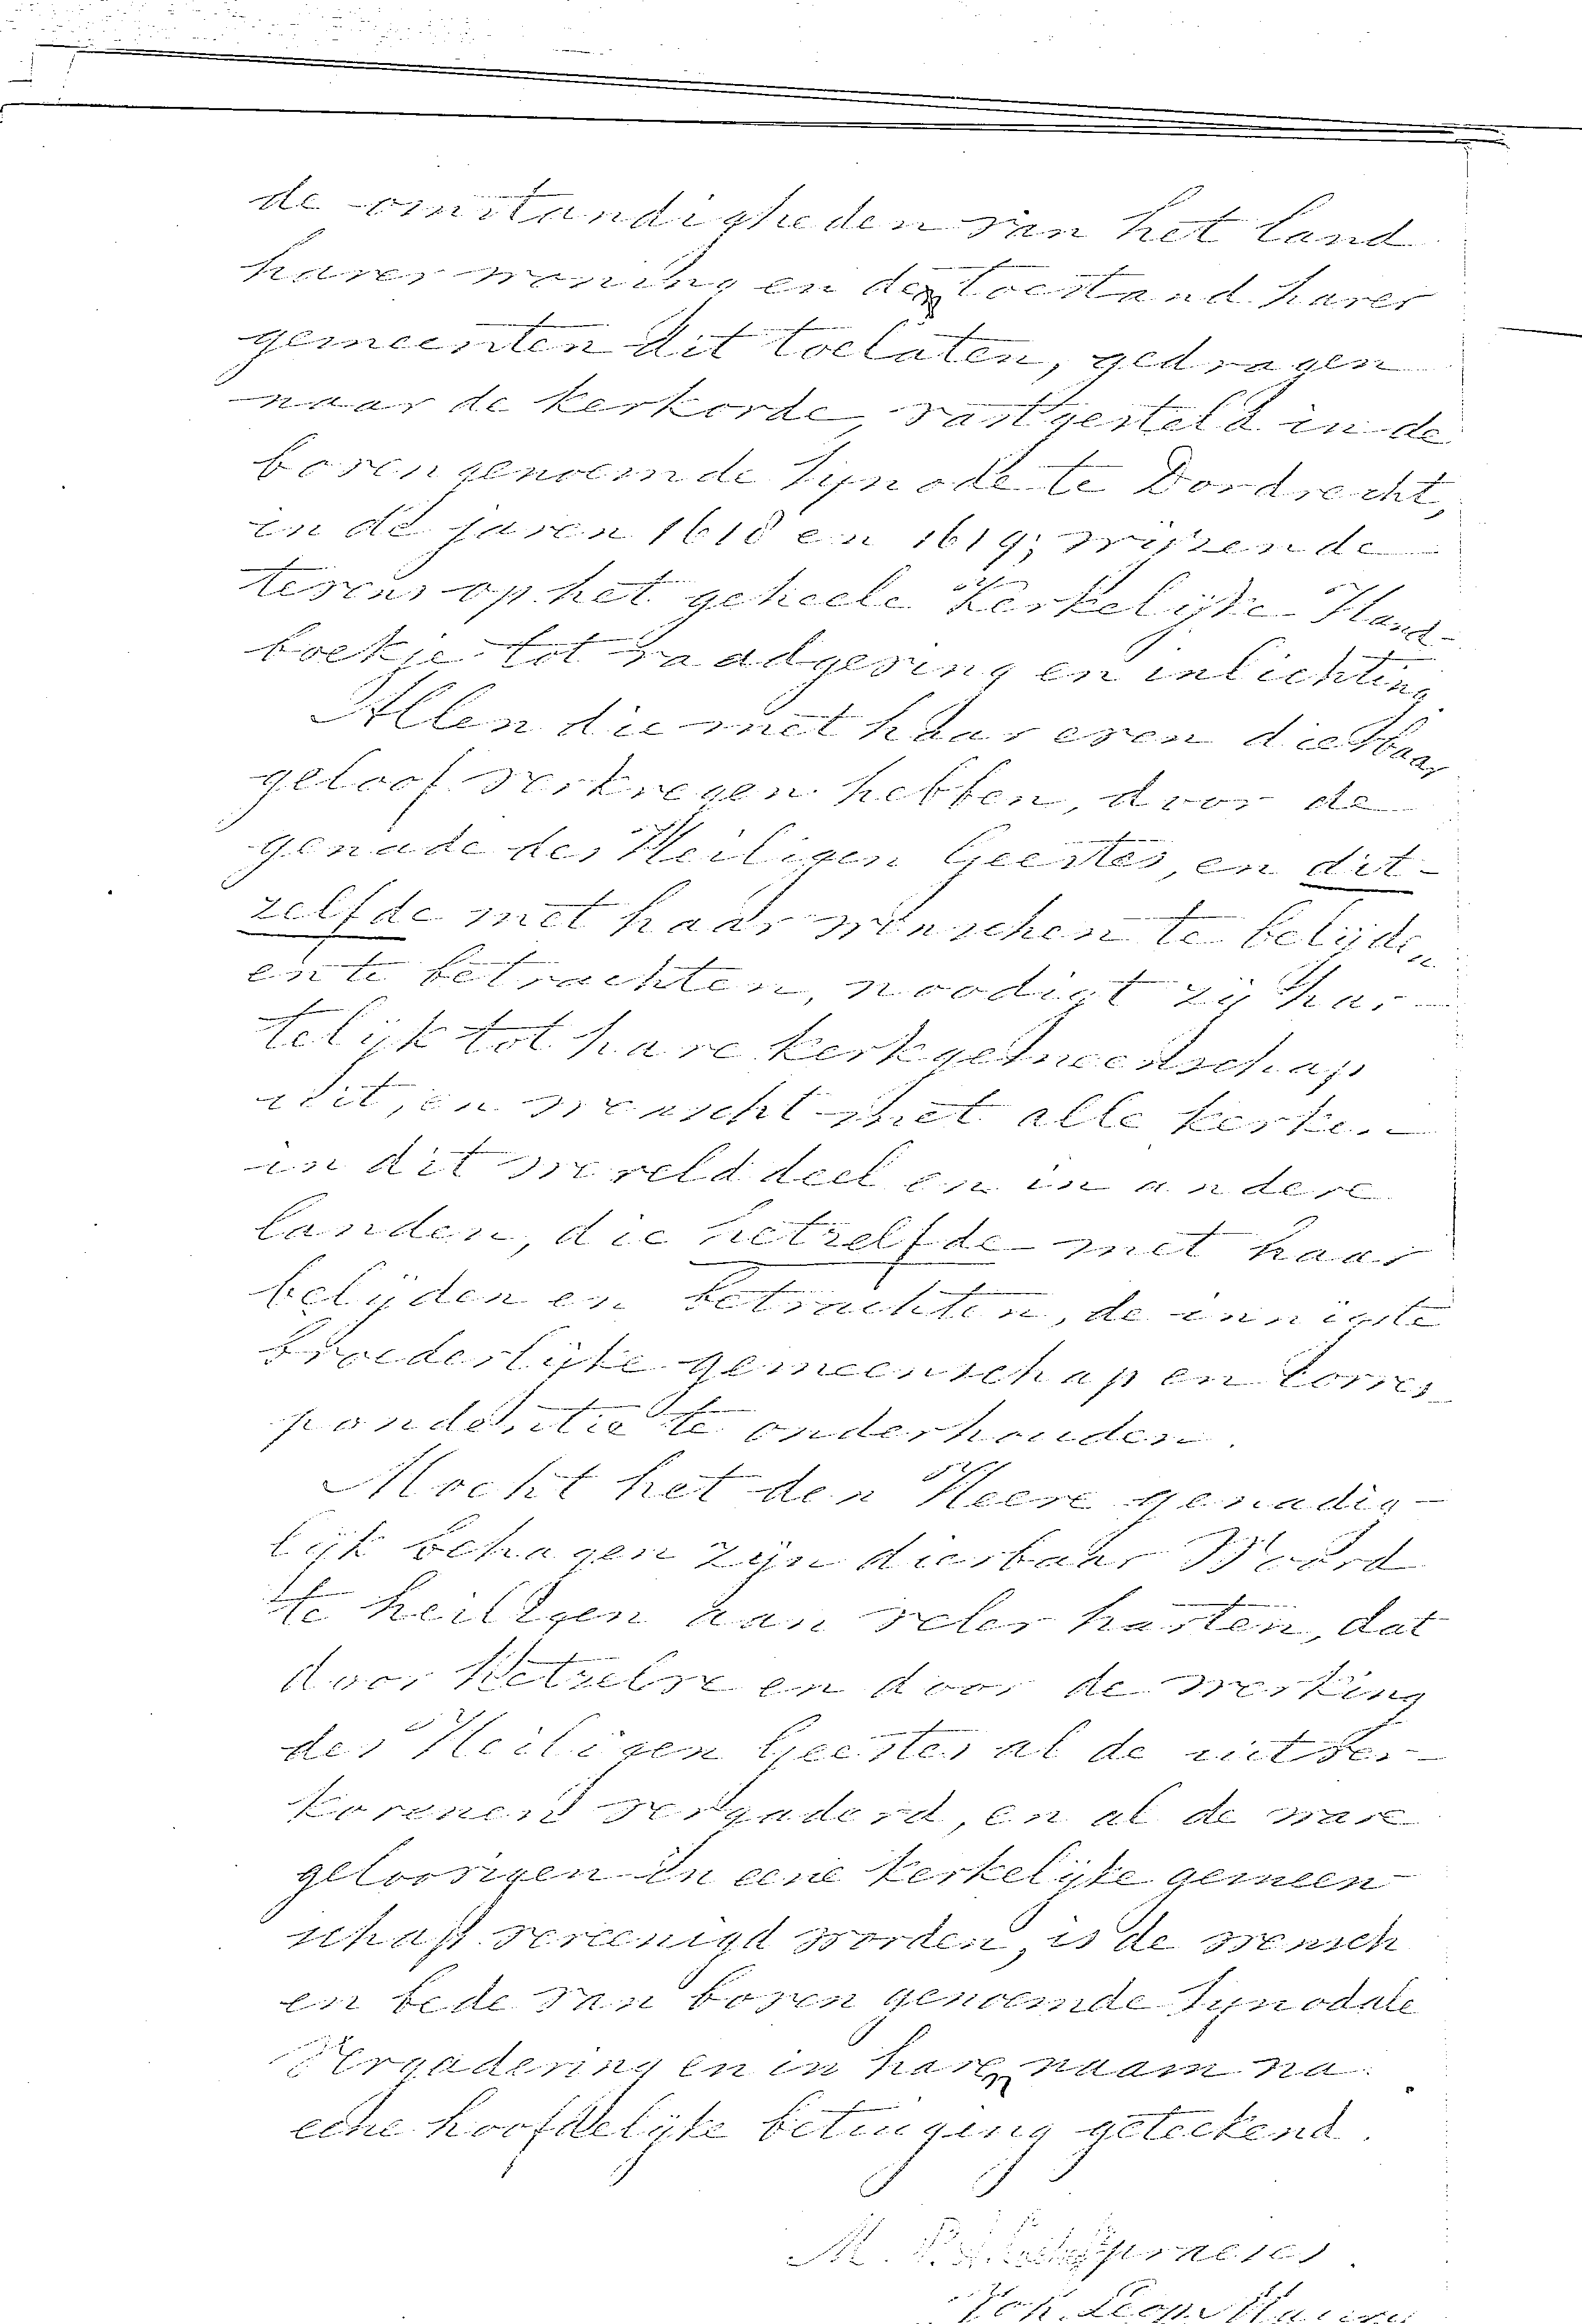 de omstandigheden van het land
harer woning en de toestand harer
gemeenten dit toelaten, gedragen
naar de kerkorde, vastgesteld in de
bovengenoemde Synode te Dordrecht,
in de jaren 1618 en 1619; wijzende
tevens op het geheele Kerkelijke Hand-
boekje tot raadgeving en inlichting.
Allen die met haar even dierbaar
geloof verkregen hebben, door de
genade des Heiligen Geestes, en dit-
zelfde met haar wenschen te belijden
en te betrachten, noodigt zij har-
telijk tot hare kerkgemeenschap
uit, en wenscht met alle kerken
in dit werelddeel en in andere
landen, die hetzelfde met haar
belijden en betrachten, de innigste
broederlijke gemeenschap en corres-
pondentie te onderhouden.
Mocht het den Heere genadig-
lijk behagen zijn dierbaar Woord
te heiligen aan veler harten, dat
door hetzelve en door de werking
des Heiligen Geestes al de uitver-
korenen vergaderd, en al de ware
geloovigen in eene kerkelijke gemeen
schap vereenigd worden, is de wensch
en bede van boven genoemde Synodale
Vergadering en in hare naam na
eene hoofdelijke betuiging geteekend.
M. praeses.
Joh.